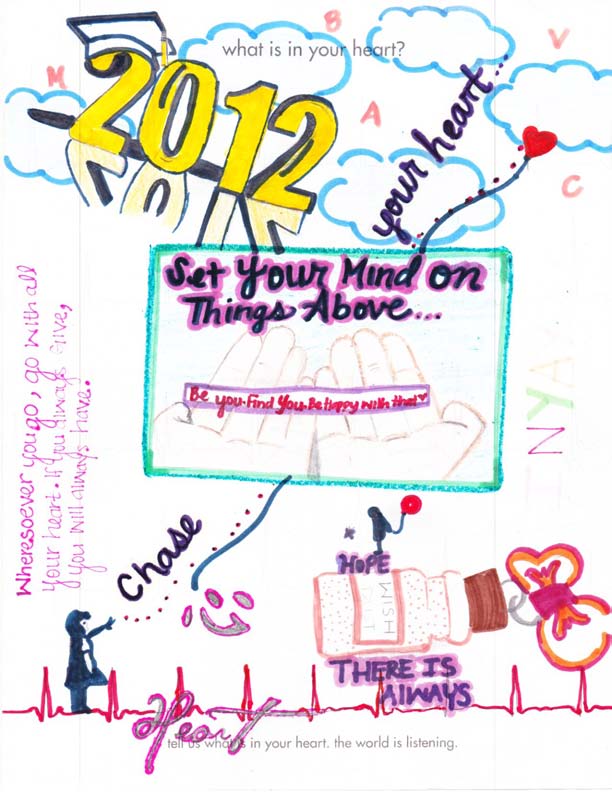 B
what is in your heart?
V
M
2012
A
C
your heart...
Set Your Mind on
Things Above...
Be you. Find You. Be Happy with that
Wheresoever you go, go with all
your heart. If you always give,
you will always have.
INYA
Chase
HOPE
THERE IS
ALWAYS
tell us what is in your heart. the world is listening.